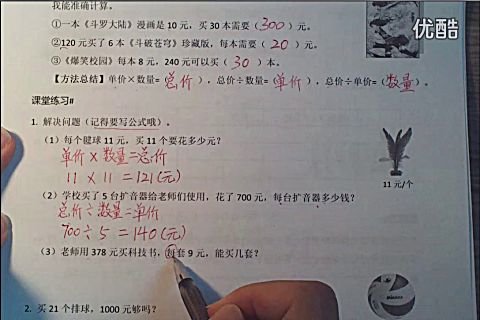 我能准确计算。
优酷
①一本《斗罗大陆》漫画是 10 元，买 30 本需要（300）元。
②120 元买了 6 本《斗破苍穹》珍藏版，每本需要（20）元。
③《爆笑校园》每本 8 元，240 元可以买（30）本。
【方法总结】单价×数量=（总价），总价÷数量=（单价），总价÷单价=（数量）。
课堂练习#
1. 解决问题（记得要写公式哦）。
（1）每个毽球 11 元，买 11 个要花多少元？
单价×数量=总价
11×11=121(元)
11 元/个
（2）学校买了 5 台扩音器给老师们使用，花了 700 元，每台扩音器多少钱？
总价÷数量=单价
700÷5=140(元)
（3）老师用 378 元买科技书，每套 9 元，能买几套？
2. 买 21 个排球，1000 元够吗？